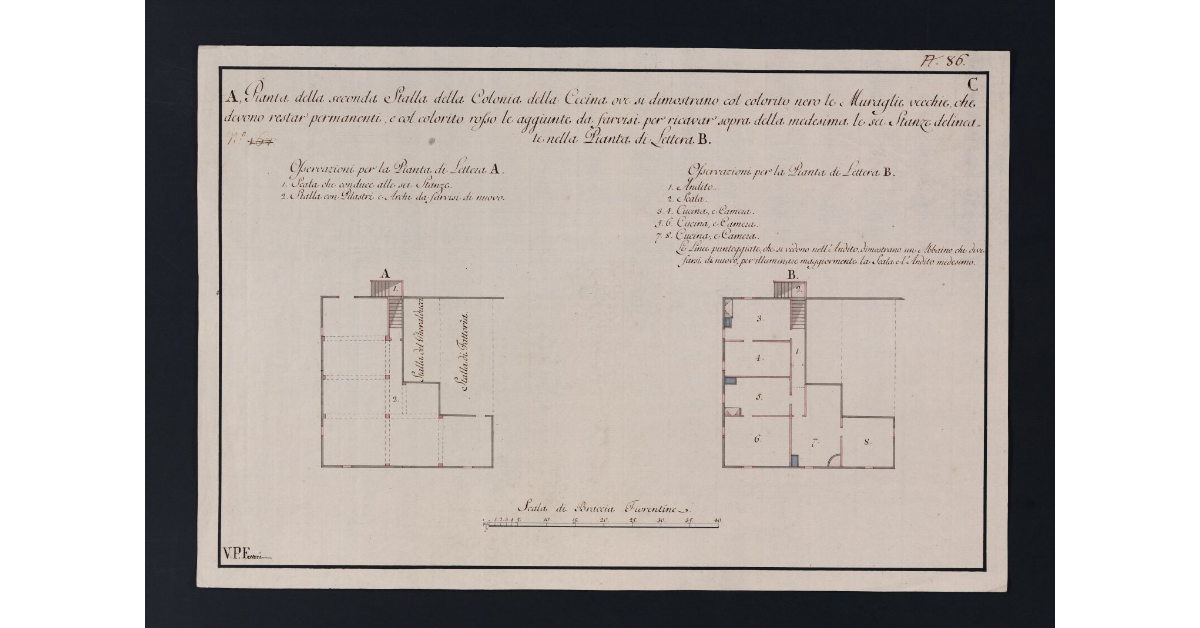 N. 86.
C
A, Pianta della seconda Stalla della Colonia della Cecina ove si dimostrano col colorito nero le Muraglie vecchie, che
devono restar permanenti, e col colorito rosso le aggiunte da farvisi per ricavar sopra della medesima le sei Stanze delinea-
te nella Pianta di Lettera B.
N.º 197
Osservazioni per la Pianta di Lettera A.
1. Scala che conduce alle sei Stanze.
2. Stalla con Pilastri e Archi da farvisi di nuovo.
Osservazioni per la Pianta di Lettera B.
1. Andito.
2. Scala.
3. 4. Cucina, e Camera.
5. 6. Cucina, e Camera.
7. 8. Cucina, e Camera.
Le Linee punteggiate, che si vedono nell'Andito, dimostrano un Abbaino che deve
farsi di nuovo, per illuminare maggiormente la Scala e l'Andito medesimo.
A
1.
Stalla del
Stalla di Fattoria.
2.
B.
2.
3.
1.
4.
5.
6.
7.
8.
Scala di Braccia Fiorentine
10 15 20 25 30 35 40
V.P.F.